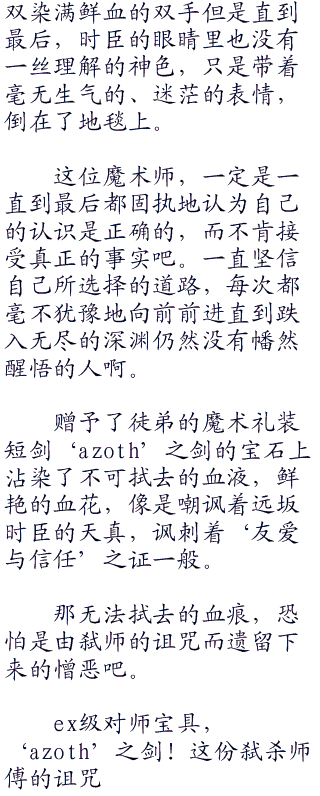 双染满鲜血的双手但是直到
最后，时臣的眼睛里也没有
一丝理解的神色，只是带着
毫无生气的、迷茫的表情，
倒在了地毯上。
这位魔术师，一定是一
直到最后都固执地认为自己
的认识是正确的，而不肯接
受真正的事实吧。一直坚信
自己所选择的道路，每次都
毫不犹豫地向前前进直到跌
入无尽的深渊仍然没有幡然
醒悟的人啊。
赠予了徒弟的魔术礼装
短剑‘azoth’之剑的宝石上
沾染了不可拭去的血液，鲜
艳的血花，像是嘲讽着远坂
时臣的天真，讽刺着‘友爱
与信任’之证一般。
那无法拭去的血痕，恐
怕是由弑师的诅咒而遗留下
来的憎恶吧。
ex级对师宝具，
‘azoth’之剑！这份弑杀师
傅的诅咒